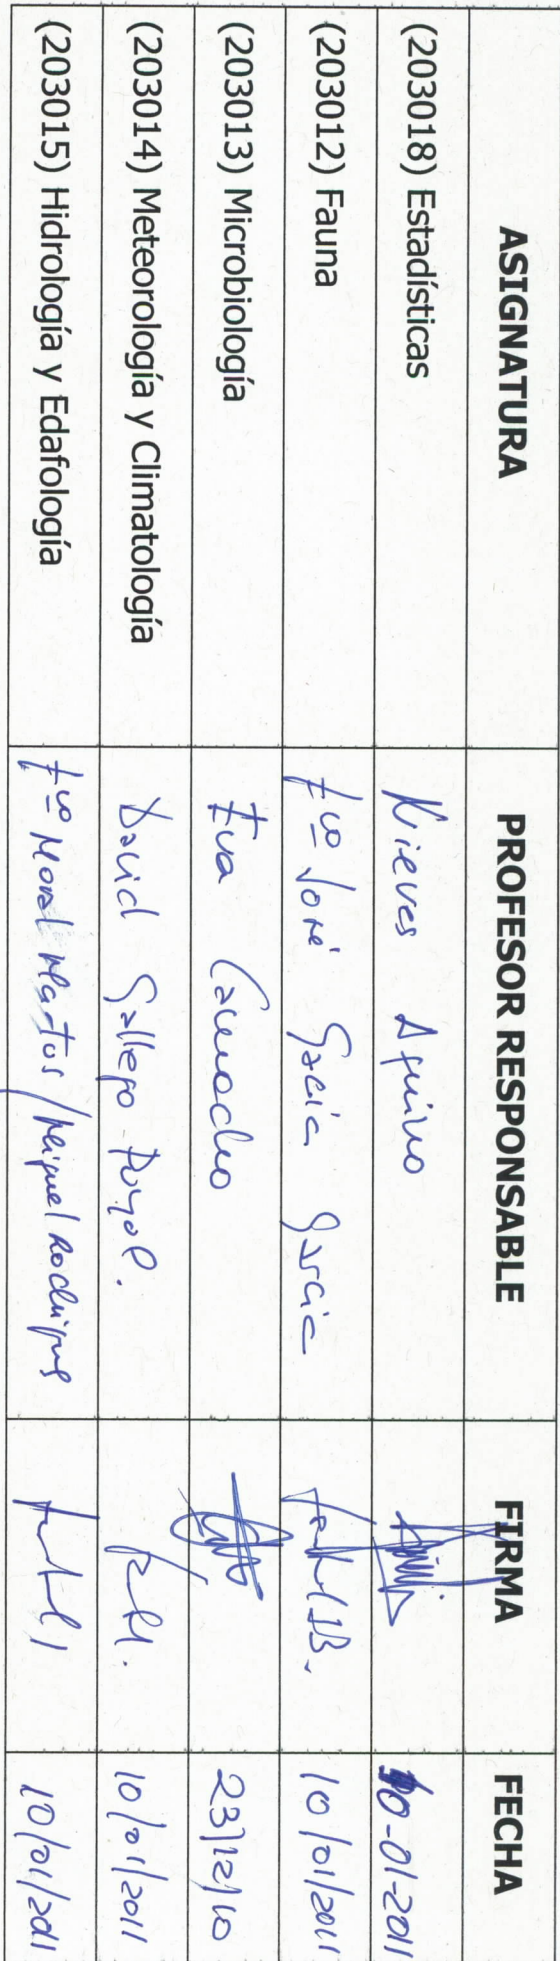 ASIGNATURA PROFESOR RESPONSABLE FIRMA FECHA
(203018) Estadísticas Nieves Aquino 10-01-2011
(203012) Fauna Fco José García García 10/01/2011
(203013) Microbiología Eva Camacho 23/12/10
(203014) Meteorología y Climatología David Gallego Puyol. 10/01/2011
(203015) Hidrología y Edafología Fco Moral Martos/Miguel Rodríguez 10/01/2011